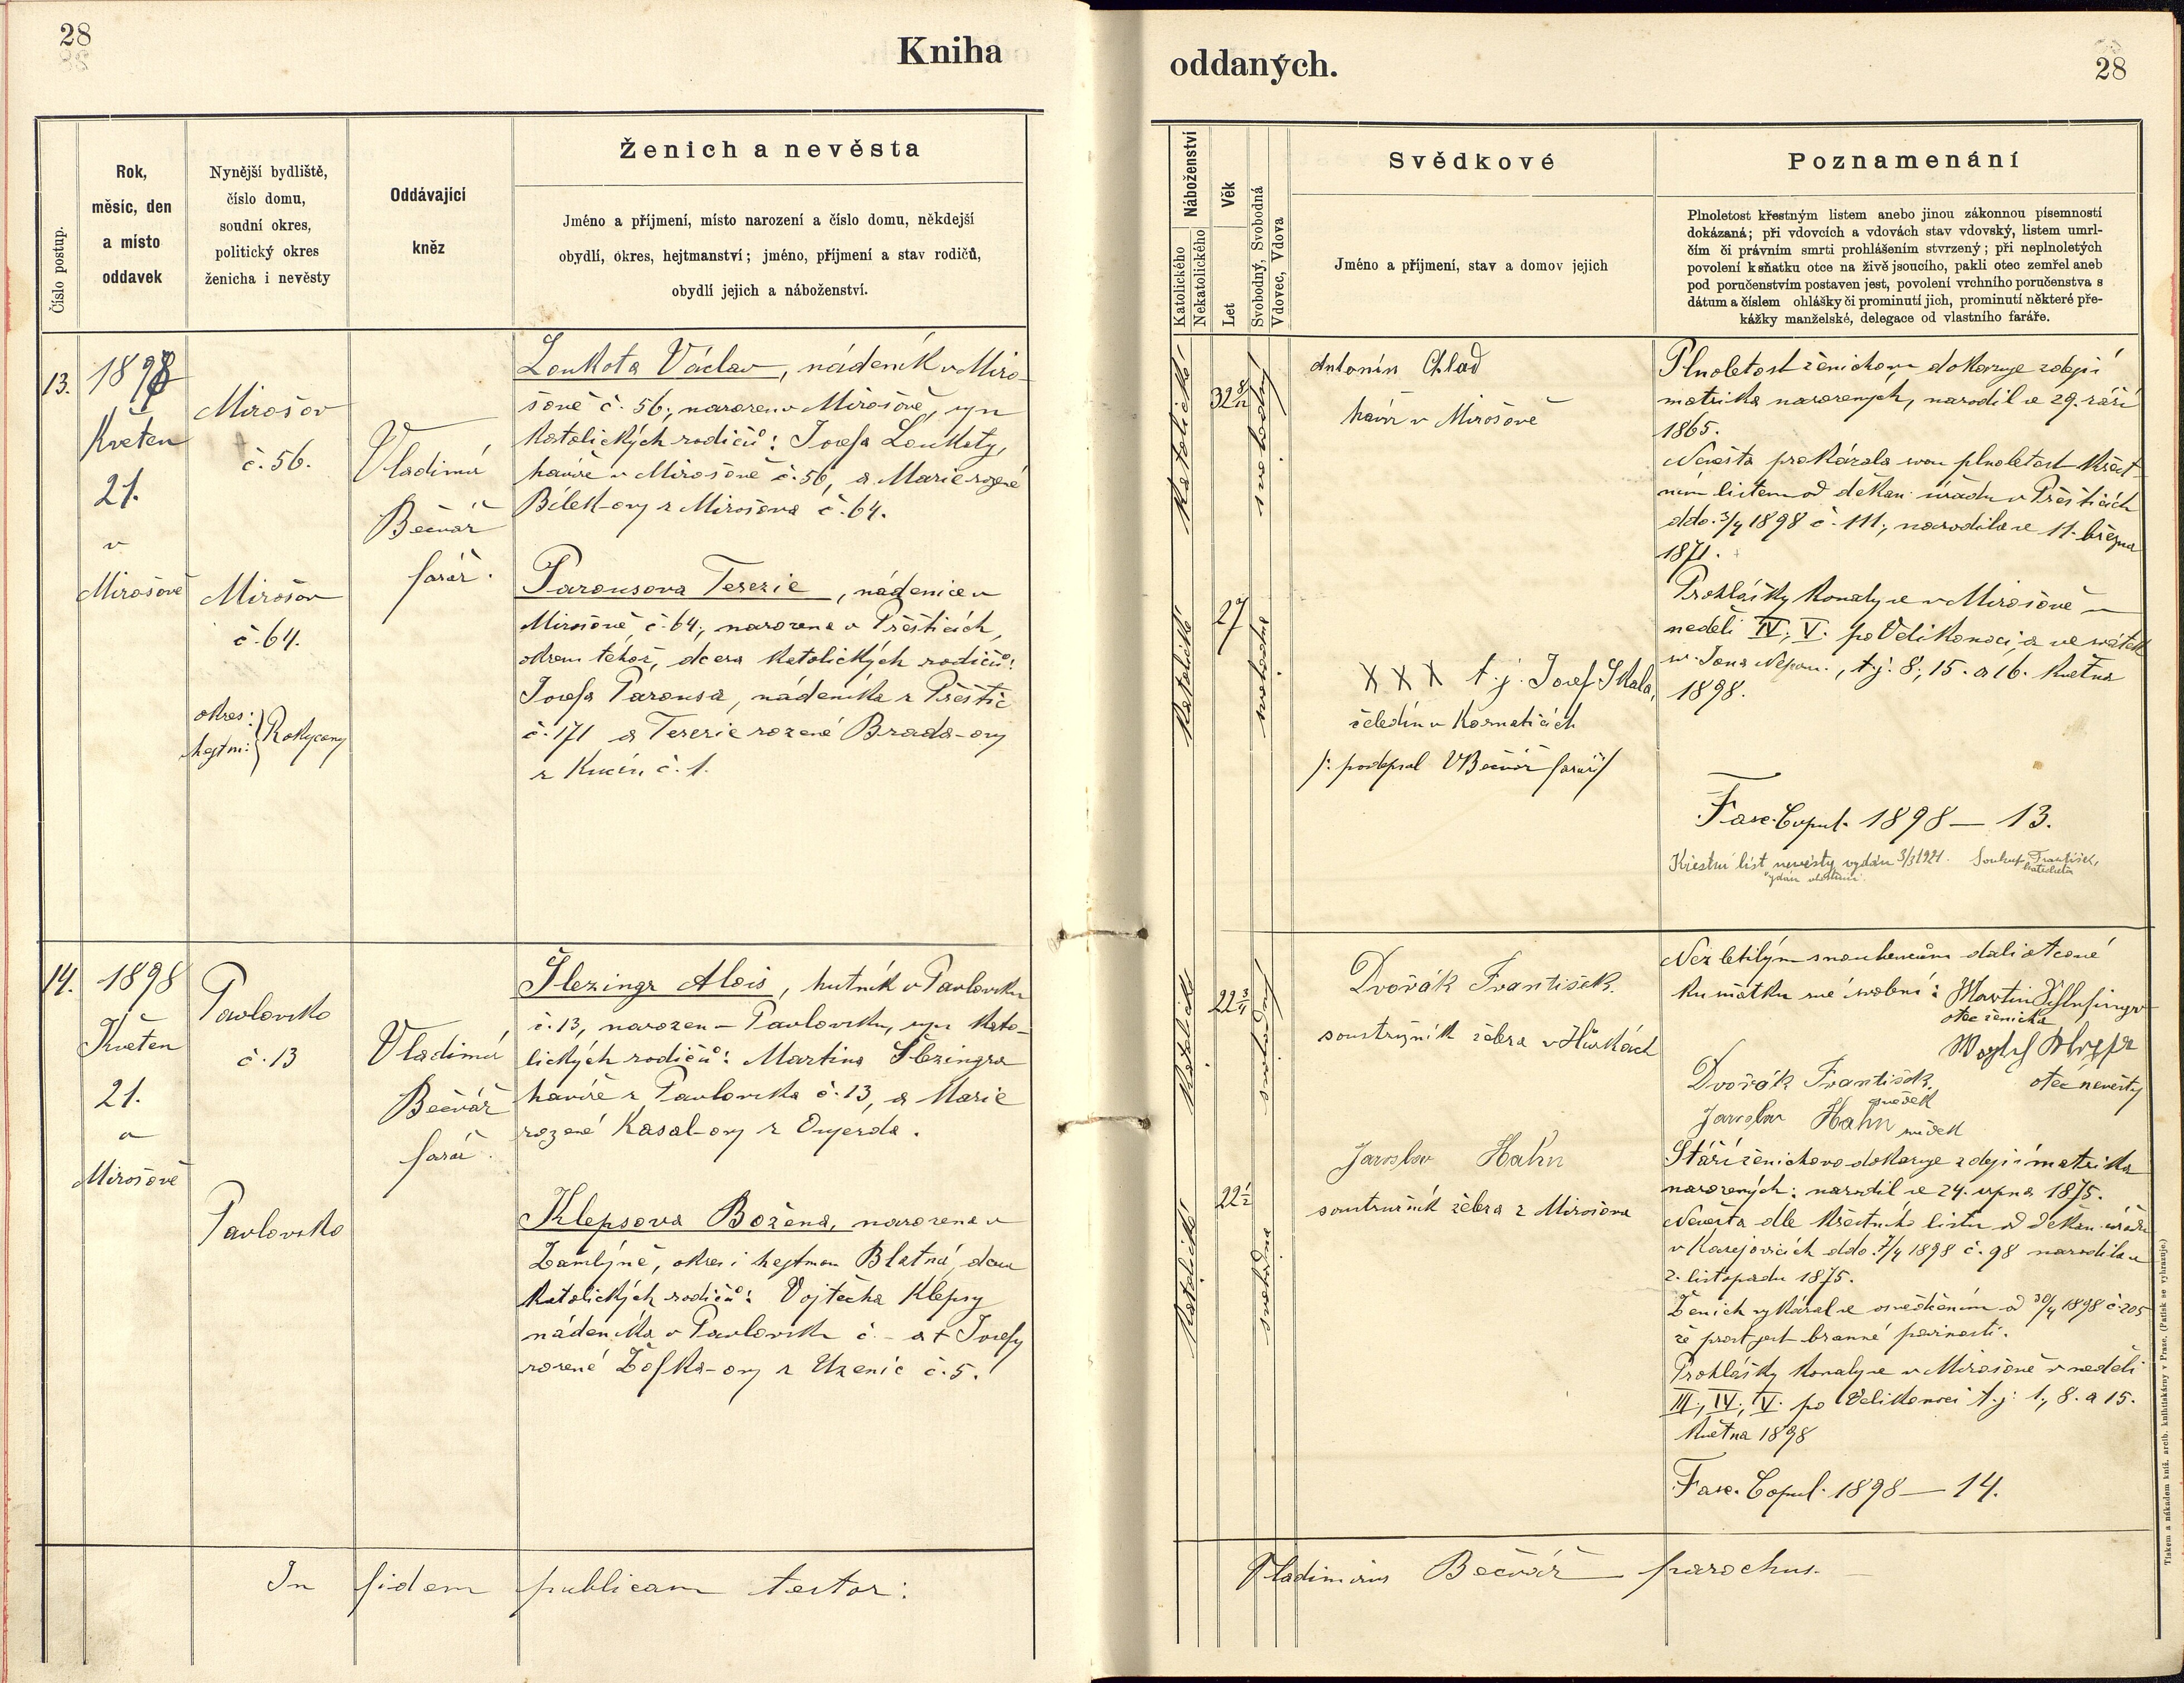 28
Kniha
Číslo postup.
Rok,
měsíc, den
a místo
oddavek
Nynější bydliště,
číslo domu,
soudní okres,
politický okres
ženicha i nevěsty
Oddávající
kněz
Ženich a nevěsta
Jméno a příjmení, místo narození a číslo domu, někdejší
obydlí, okres, hejtmanství; jméno, příjmení a stav rodičů,
obydlí jejich a náboženství.
13.
1898
Květen
21.
v
Mirošově
Mirošov
č. 56.
Mirošov
č. 64.
okres:
hejtm:
Rokycany
Vladimír
Bečvář
farář.
Loukota Václav, nádeník v Miro-
šově č. 56, narozen v Mirošově, syn
katolických rodičů: Josefa Loukoty,
havíře v Mirošově č. 56, a Marie rozené
Bílek-ovy z Mirošova č. 64.
Parousova Terezie, nádenice v
Mirošově č. 64, narozena v Přešticích,
okresu téhož, dcera katolických rodičů:
Josefa Parousa, nádeníka z Přeštic
č. 171 a Terezie rozené Brada-ovy
z Kucín č. 1.
14.
1898
Květen
21.
v
Mirošově
Pavlovsko
č. 13
Pavlovsko
Vladimír
Bečvář
farář.
Šlezingr Alois, hutník v Pavlovsku
č. 13, narozen v Pavlovsku, syn kato-
lických rodičů: Martina Šlezingra
havíře z Pavlovska č. 13, a Marie
rozené Kasal-ovy z
Klepsova Božena, narozena v
Zámlýně, okres i hejtman Blatná, dcera
katolických rodičů: Vojtěcha Klepsy
nádeníka v Pavlovsku č. - a † Josefy
rozené Žofka-ovy z Uzenic č. 5.
In fidem publicam testor:
oddaných.
28
Náboženství
Katolického
Nekatolického
Věk
Let
Svobodný, Svobodná
Vdovec, Vdova
Svědkové
Jméno a příjmení, stav a domov jejich
Poznamenání
Plnoletost křestným listem anebo jinou zákonnou písemností
dokázaná; při vdovcích a vdovách stav vdovský, listem umrl-
čím či právním smrti prohlášením stvrzený; při neplnoletých
povolení k sňatku otce na živě jsoucího, pakli otec zemřel aneb
pod poručenstvím postaven jest, povolení vrchního poručenstva s
dátum a číslem ohlášky či prominutí jich, prominutí některé pře-
kážky manželské, delegace od vlastního faráře.
katolické
32 8/12
svobodný
katolické
27
svobodná
Antonín Chlad
havíř v Mirošově
X X X t. j. Josef Skala,
čeledín v Kornaticích
/: podepsal VBečvář farář/
Plnoletost ženichovu dokazuje zdejší
matrika narozených, narodil se 29. září
1865.
Nevěsta prokázala svou plnoletost křest-
ním listem od děkan. úřadu v Přešticích
ddo. 3/4 1898 č. 111, narodila se 11. března
1871.
Prohlášky konaly se v Mirošově v
neděli IV., V. po Velikonoci, a ve svátek
sv. Jana Nepom., t. j. 8, 15. a 16. května
1898.
Fasc. Copul. 1898 — 13.
Křestní list nevěsty vydán 3/3 1921. Soukup František,
katecheta
katolické
svobodný
katolické
22 1/2
svobodná
Dvořák František.
soustružník železa v Hůrkách
Jaroslav Hahn
soustružník železa z Mirošova
Nezletilým snoubencům dali otcové
ku sňatku své svolení: Martin Schlesinger
otec ženicha
otec nevěsty
Dvořák František.
svědek
Jaroslav Hahn svědek
Stáří ženichovo dokazuje zdejší matrika
narozených: narodil se 24. srpna 1875.
Nevěsta dle křestního listu od děkan. úřadu
v Kasejovicích ddo. 7/4 1898 č. 98 narodila se
2. listopadu 1875.
Ženich vykázal se osvědčením od 30/4 1898 č. 205
že prost jest branné povinnosti.
Prohlášky konaly se v Mirošově v neděli
III., IV., V. po Velikonoci t. j. 1., 8. a 15.
května 1898
Fasc. Copul. 1898 — 14.
Vladimirus Bečvář parochus.
Tiskem a nákladem kníž. arcib. knihtiskárny v Praze. (Patisk se vyhrazuje.)